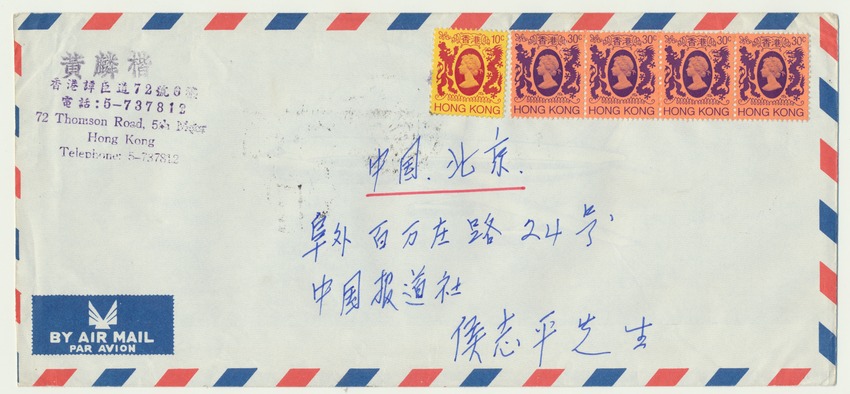 黃麟楷
香港譚臣道72號6樓
電話:5-737812
72 Thomson Road, 5th
Hong Kong
Telephone: 5-737812
香港 10¢
HONG KONG
香港 30¢
HONG KONG
香港 30¢
HONG KONG
香港 30¢
HONG KONG
香港 30¢
HONG KONG
中国.北京.
阜外百万庄路24号
中国报道社
侯志平先生
BY AIR MAIL
PAR AVION